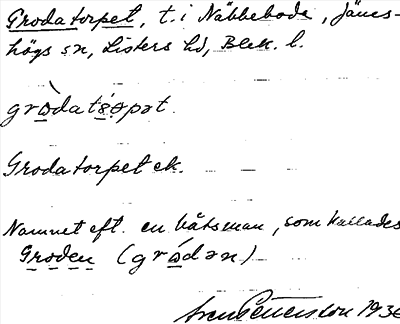 Grodatorpet, t. i Näbbeboda, Jäms-
högs sn, Listers hd, Blek. l.
gròdatɷ́rpət.
Grodatorpet ek.
Namnet eft. en båtsman, som kallades
Groden (gródən)
Sven Petersson 1936